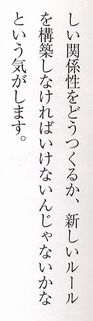 しい関係性をどうつくるか、新しいルール
を構築しなければいけないんじゃないかな
という気がします。